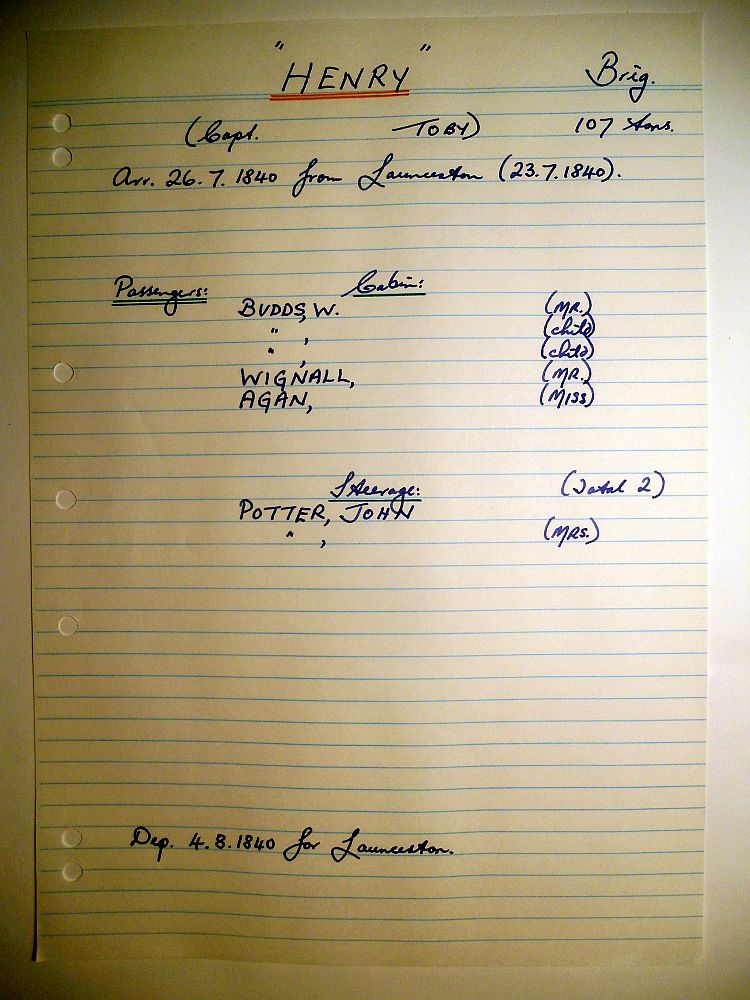 "HENRY" Brig.
(Capt. TOBY) 107 tons.
Arr. 26.7.1840 from Launceston (23.7.1840).
Passengers: Cabin:
BUDDS, W. (MR.)
" , (child)
" , (child)
WIGNALL, (MR.)
AGAN, (MISS)
Steerage: (Total 2)
POTTER, JOHN
" , (MRS.)
Dep. 4.8.1840 for Launceston.